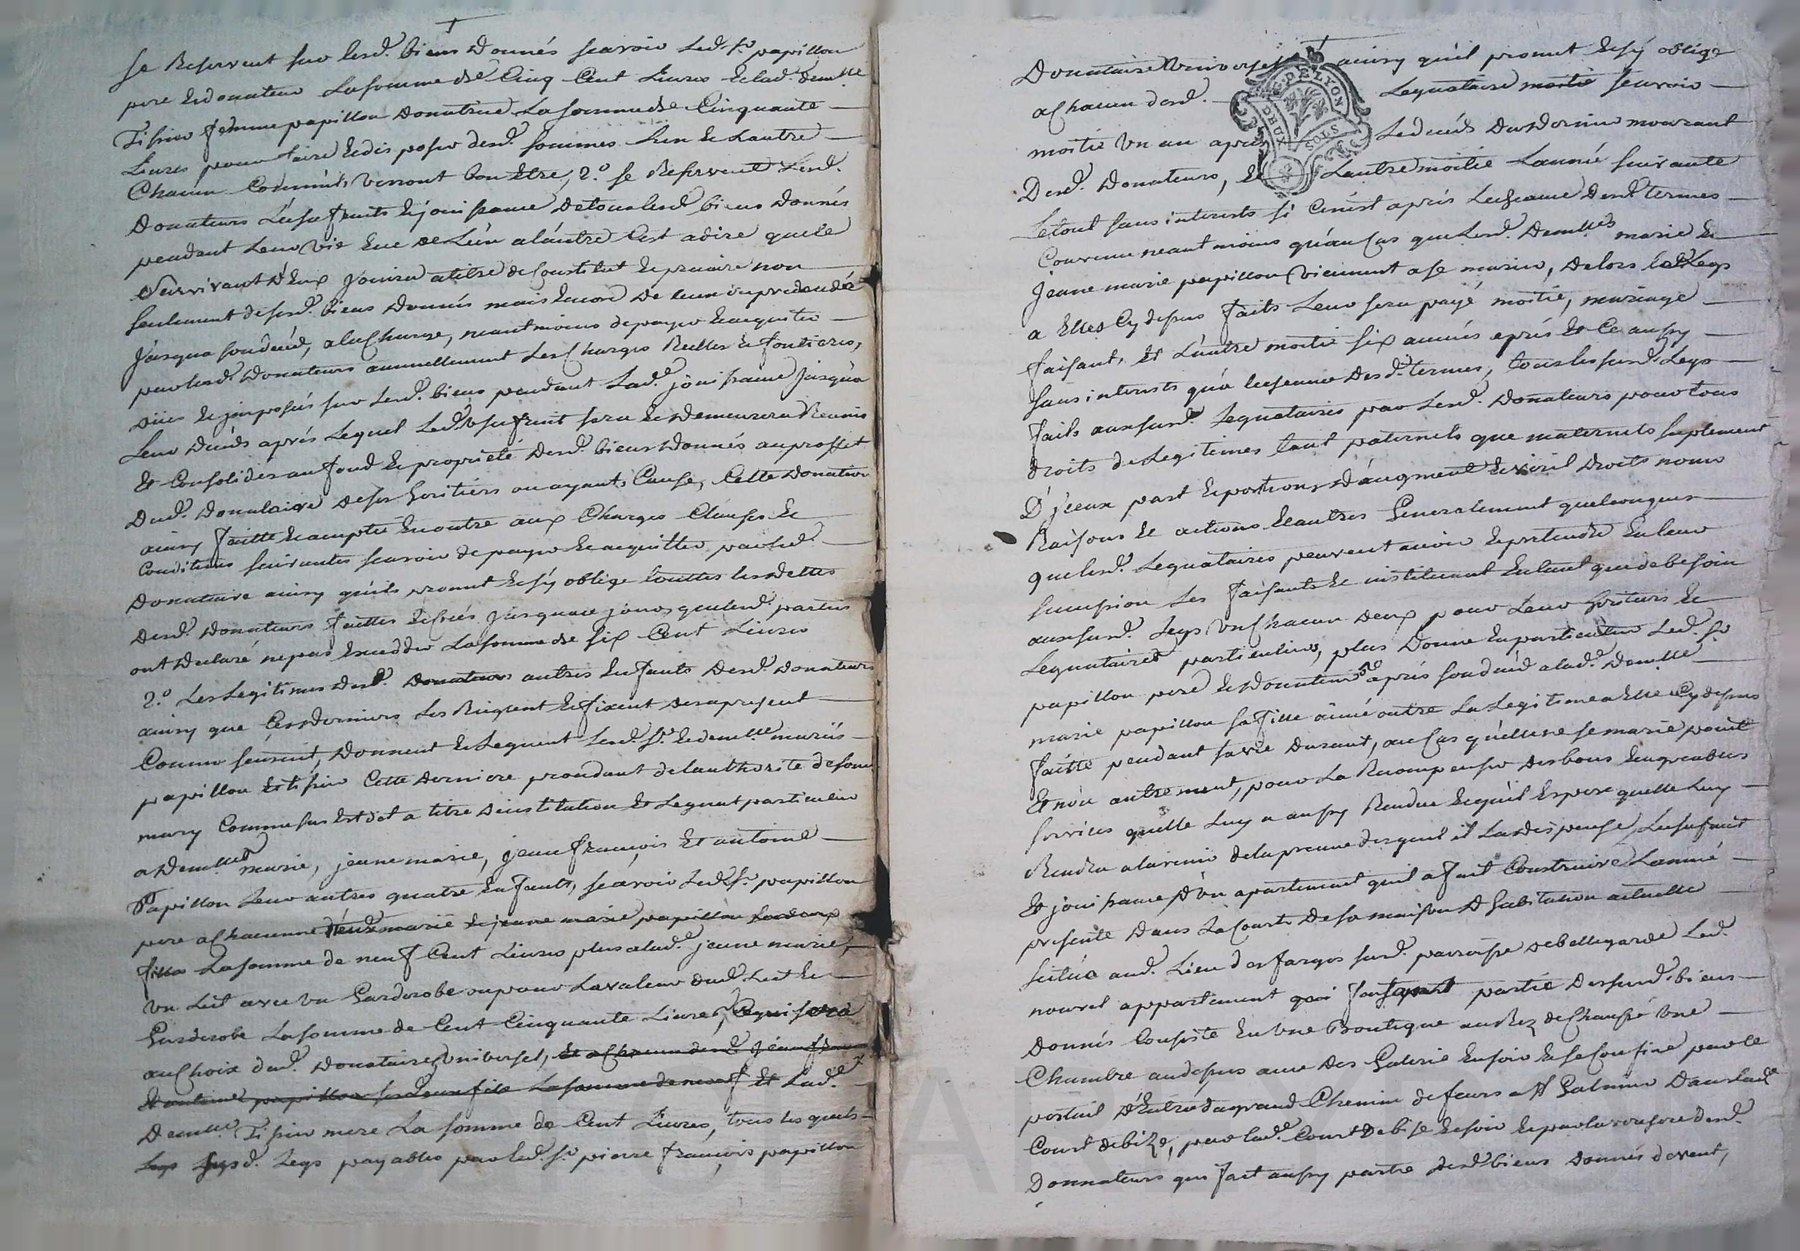 se Reservent sur lesd. biens Donnés scavoir led. Sr. papillon
pere et donateur la somme de Cinq Cent Livres et lad. demlle
Tissier femme papillon Donatrice La somme de Cinquante
Livres pour faire et disposer desd. sommes Lun et Lautre
Chacun Comme ils verront bon Etre, 2.o se Reservent Lesd.
Donateurs L'usufruits et jouissance de tous lesd. biens donnés
pendant Leur vie et de L'un a lautre C'est a dire que le
survivant d'Eux jouira a titre de Constitut et precaire non
seulement de ses d. biens Donnés mais Encore de ceux du predecedé
jusqua son deced, a la Charge, neantmoins de payer et acquiter
par lesd. Donateurs annuellement Les Charges Reelles et foncieres,
et imposés sur lesd. biens pendant Lad.e jouissance jusqu'a
Leur Deceds aprés Lequel Led. Usufruit sera et Demeurera Reunis
Et Consolider au fond et proprieté Desd. biens Donnés au proffit
Dud. Donataire de ses heritiers ou ayants Cause, Cette Donation
ainsy faitte et acceptée Encontre aux Charges Clauses et
Conditions suivantes scavoir de payer et acquitter par led.
Donataire ainsy qu'il promet et s'y oblige touttes les dettes
desd. Donateurs faittes et jusqua ce jour, que lesd. parties
ont Declaré ne pas Exceder La somme de six Cent Livres
2.o Les Legitimes desd. Donateurs autres Enfants Desd. Donateurs
ainsy que Ces derniers Les Reiglent et fixent des apresent
Comme sensuit, Donnent et Leguent Lesd. Sr. et demlle mariés
papillon et tissier Cette Derniere procedant de lauthorité de son
mary Comme sus Est dit a titre D'institution et Legat particulier
a Demlles marie, jeanne marie, jean françois Et antoine
Papillon Leur autres quatre Enfants, scavoir Led. Sr. papillon
pere a chacunne d'eux marie et jeanne marie papillon
filles La somme de neuf Cent Livres plus a lad.e jeanne marie,
un Lit avec un Garderobe ou pour La valeur dud. Lit et
Garderobe La somme de Cent Cinquante Livres, Ce qui sera
au Choix dud. Donataire universel, et a chacun desd. jean françois
et antoine papillon ses deux fils La somme de neuf Et Lad.e
Demlle Tissier mere La somme de Cent Livres, tous les quels
Legs susd. Legs payables par led. Sr. pierre françois papillon
Donataire Universel ainsy qu'il promet et s'y oblige
a Chacun desd. Legataires moitié scavoir
moitié Un an aprés Le deceds du dernier mourant
Desd. Donateurs, Et Lautre moitié Lannée suivante
Le tout sans interests si Ce n'est aprés L'echeance Desd. termes
Convenu neantmoins qu'au Cas que Lesd. Demlles marie et
jeanne marie papillon viennent a se marier, Delors Les Legs
a Elles Cy dessus faits Leur sera payé moitié, mariage
faisant, Et L'autre moitié six années aprés Et Ce aussy
sans interests qu'a L'echeance Desd. termes, tous les susd. Legs
faits aux susd. Legataires par Lesd. Donateurs pour tous
droits de Legitimes tant paternels que maternels suplement
D'jceux part et portion, D'augment et viril Droits noms
Raisons et actions et autres Generalement quelconques
que lesd. Legataires peuvent avoir et pretendre En leur
succession Les faisants et instituant En tant que de besoin
aux susd. Legs Un Chacun Deux pour Leur heritiers et
Legataires particuliers, plus Donne En particulier Led. Sr.
papillon pere et Donateur aprés son deced a lad.e Demlle
marie papillon sa fille ainée outre La Legitime a Elle Cy dessus
faitte pendant sa vie Durant, au Cas qu'elle ne se marie point
Et non autrement, pour La Recompenser Des bons et agreables
services quelle Luy a aussy Rendue Et qu'il Espere quelle Luy
Rendra a lavenir de la preuve desquel il La dispense, L'usufruit
Et jouissance D'un apartement quil a fait Construire Lannée
presente Dans La Court de sa maison D'habitation actuelle
scituée aud. Lieu des farges susd. parroisse de bellegarde Led.
nouvel appartement qui faisant partie des susd. biens
Donnés Consiste En Une Boutique au Rez de Chaussé Une
Chambre au dessus avec Des Galerie En soir et se Confine par le
portail D'Entrée du grand Chemin de feurs a St Galmier Dans lad.
Court de bize, par lad.e Court de bise et soir et par la des d.
Donnateurs qui fait aussy partie Desd. biens Donnés devent,
G.DE LYON
DEUX SOLS